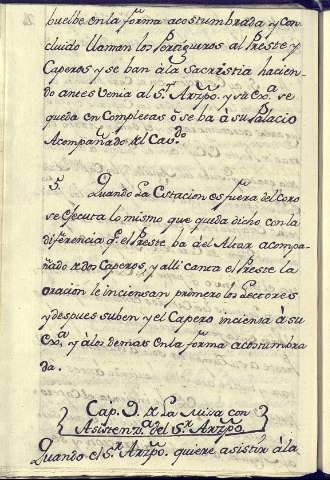 buelbe en la forma acostumbrada y con-
cluido llaman los Pertigueros al Preste y
Caperos y se ban à la sacristia hacien-
do antes Venia al Sr. Arzpo. y su Exa. se
queda en Completas ò se ba à su Palacio
Acompañado del Cavdo.
5. Quando La Estacion es fuera del Coro
se ejecuta lo mismo que queda dicho con la
diferencia qe. el Preste ba á el Altar acompa-
ñado de dos Caperos, y alli canta el Preste la
oracion le inciensan primero los Lectores
y despues suben y el Capero inciensa â su
Exa. y à los demas en la forma acostumbra
da.
Cap. 9. de La Misa con
Asistenza. del Sr. Arzpo.
Quando el Sr. Arzpo. quiere asistir à la